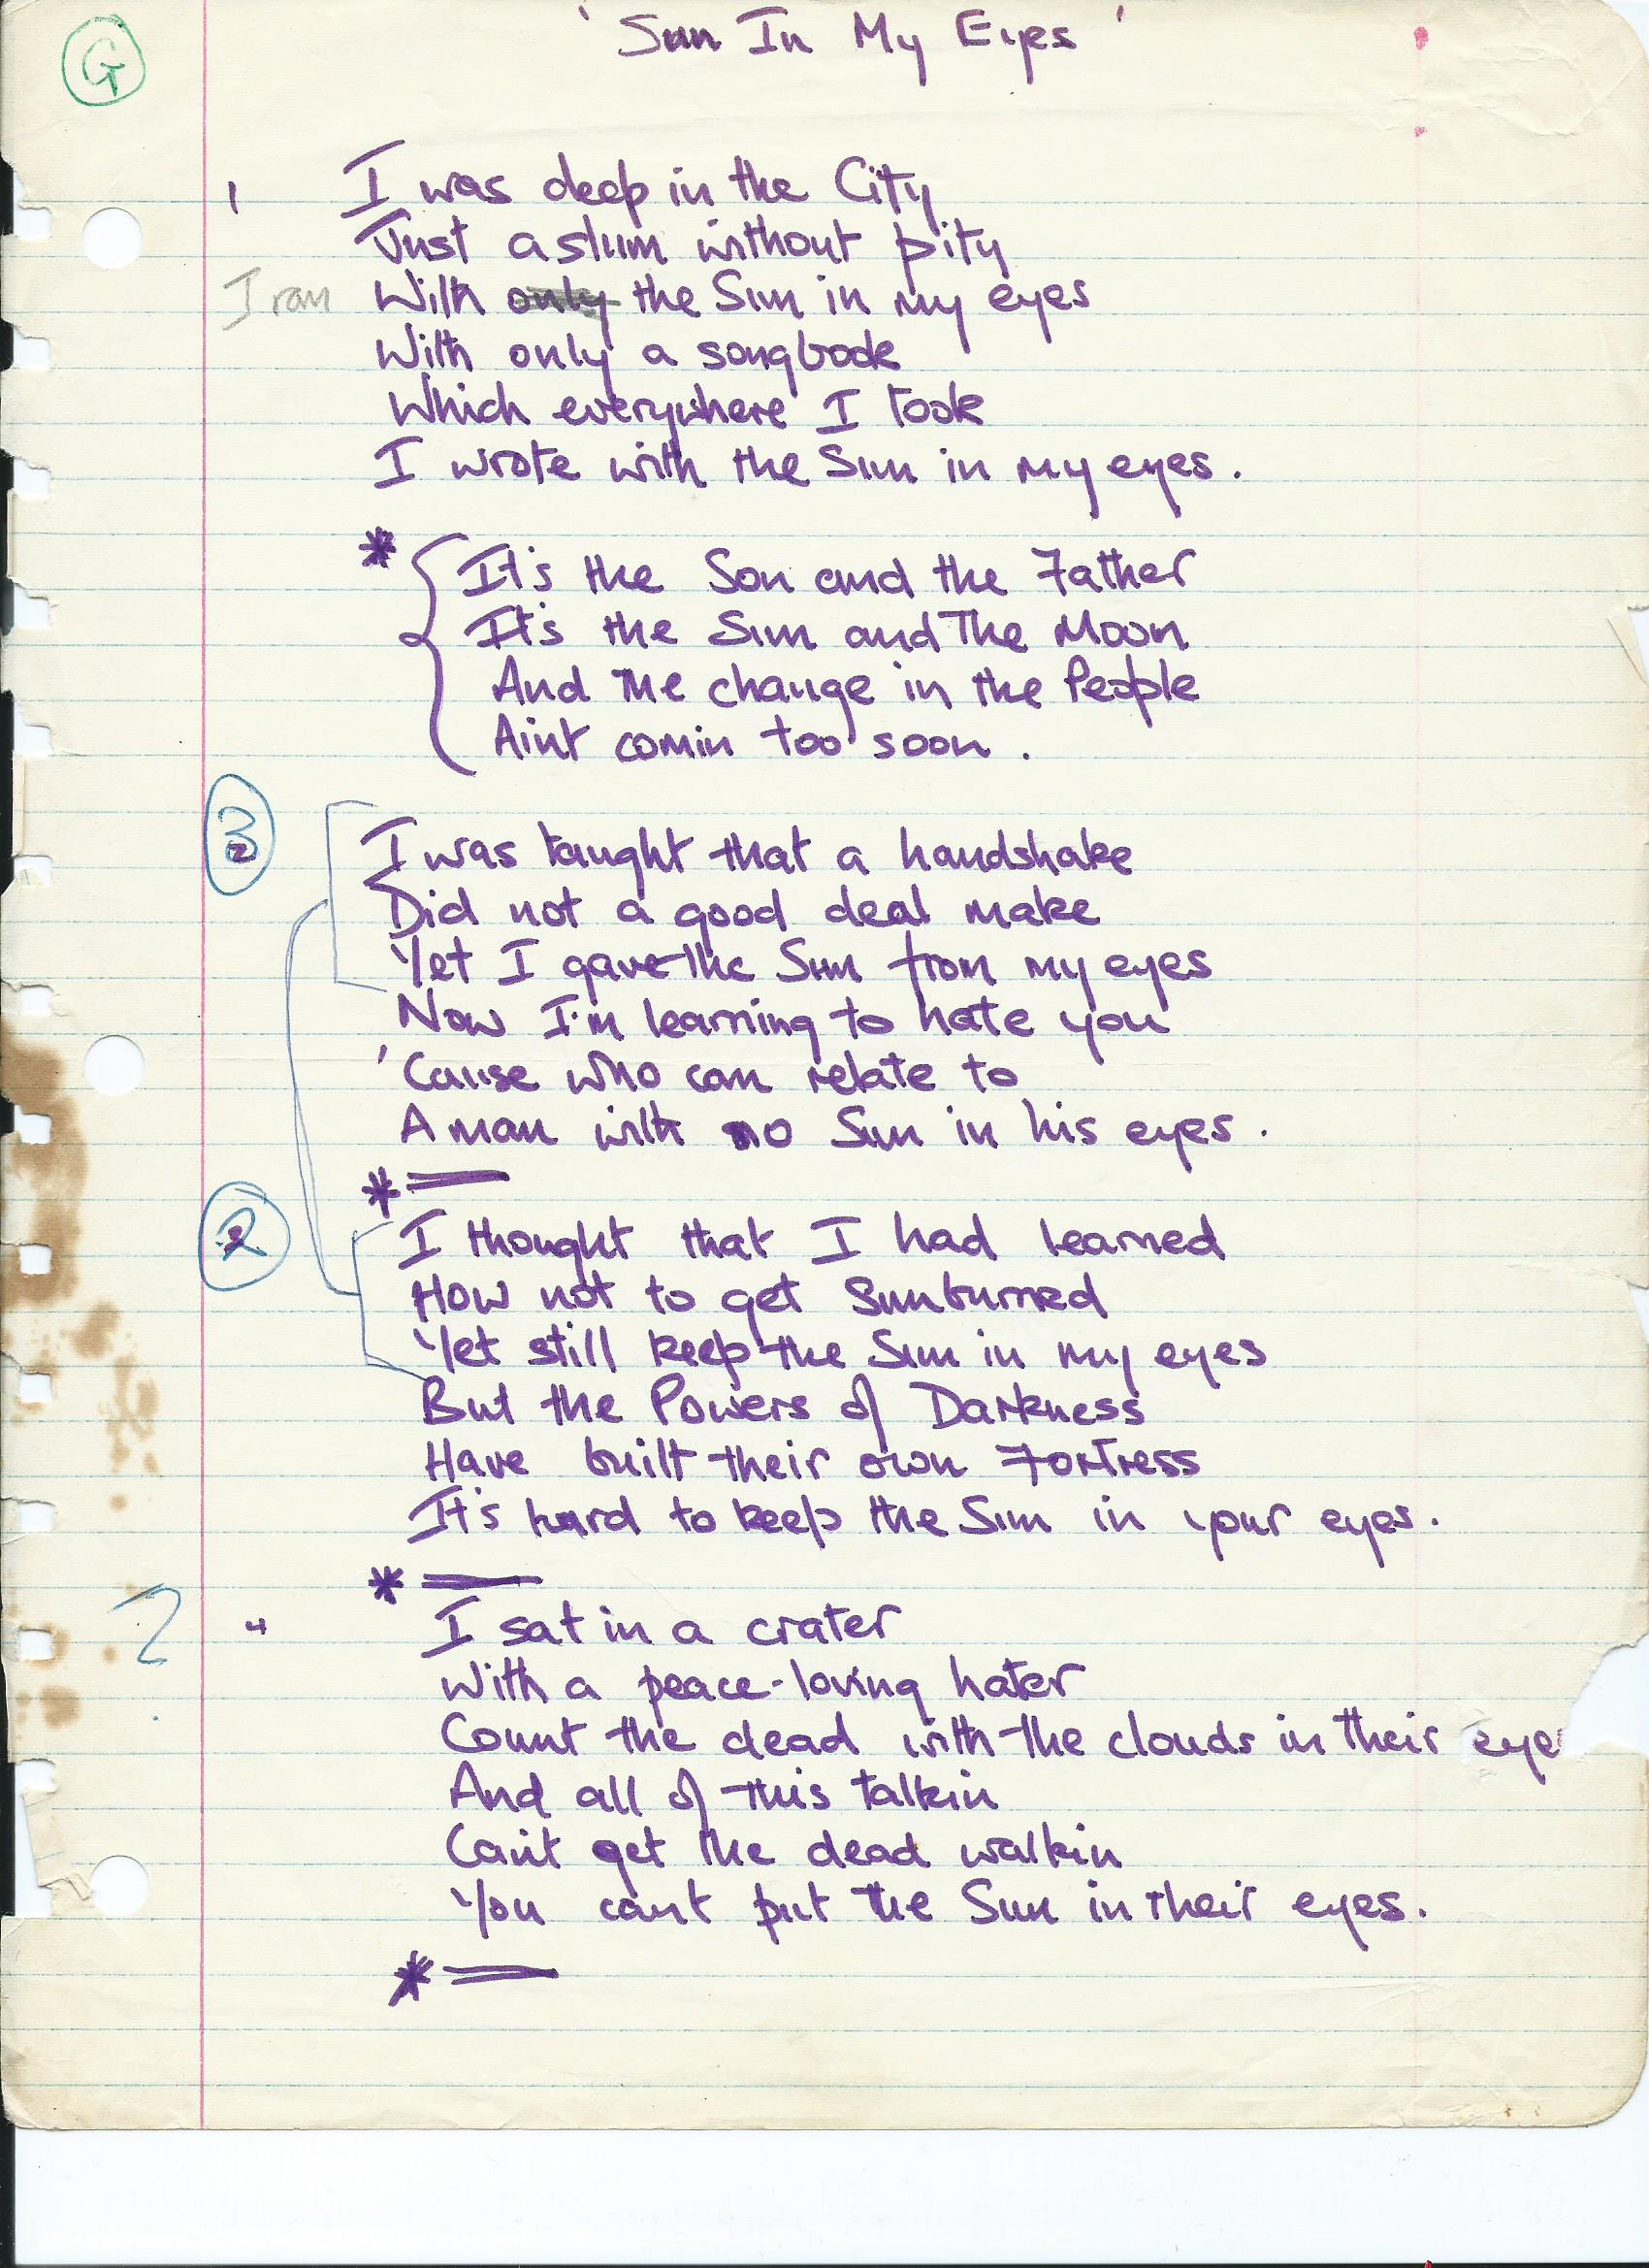 G
'Sun In My Eyes'
1 I was deep in the City
Just a slum without pity
I ran With only the Sun in my eyes
With only a songbook
Which everywhere I took
I wrote with the Sun in my eyes.
* { It's the Son and the Father
It's the Sun and The Moon
And The change in the People
Aint comin too soon.
3 I was taught that a handshake
Did not a good deal make
Yet I gave the Sun from my eyes
Now I'm learning to hate you
'Cause who can relate to
A man with no Sun in his eyes.
* —
2 I thought that I had learned
How not to get Sunburned
Yet still keep the Sun in my eyes
But the Powers of Darkness
Have built their own Fortress
It's hard to keep the Sun in your eyes.
* —
? 4 I sat in a crater
With a peace-loving hater
Count the dead with the clouds in their eye
And all of this talkin
Can't get the dead walkin
You can't put the Sun in their eyes.
* —